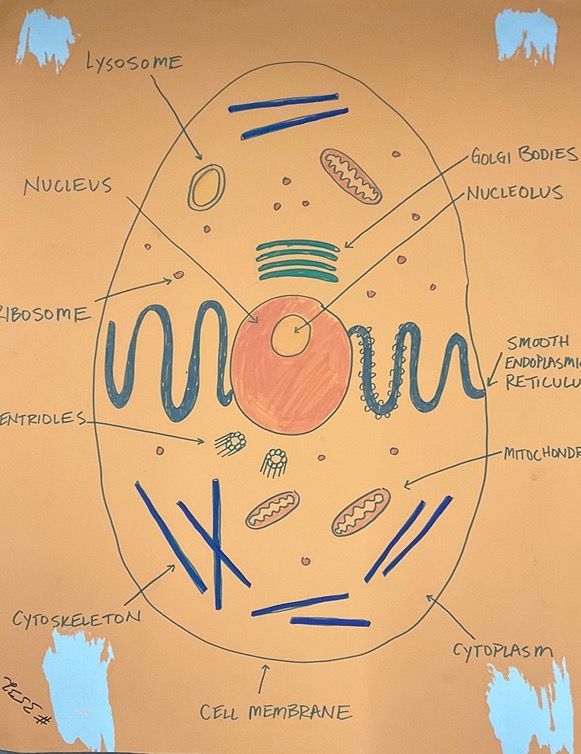 LYSOSOME
GOLGI BODIES
NUCLEUS
NUCLEOLUS
IBOSOME
SMOOTH
ENDOPLASMI
RETICULU
ENTRIOLES
MITOCHONDR
CYTOSKELETON
CYTOPLASM
CELL MEMBRANE